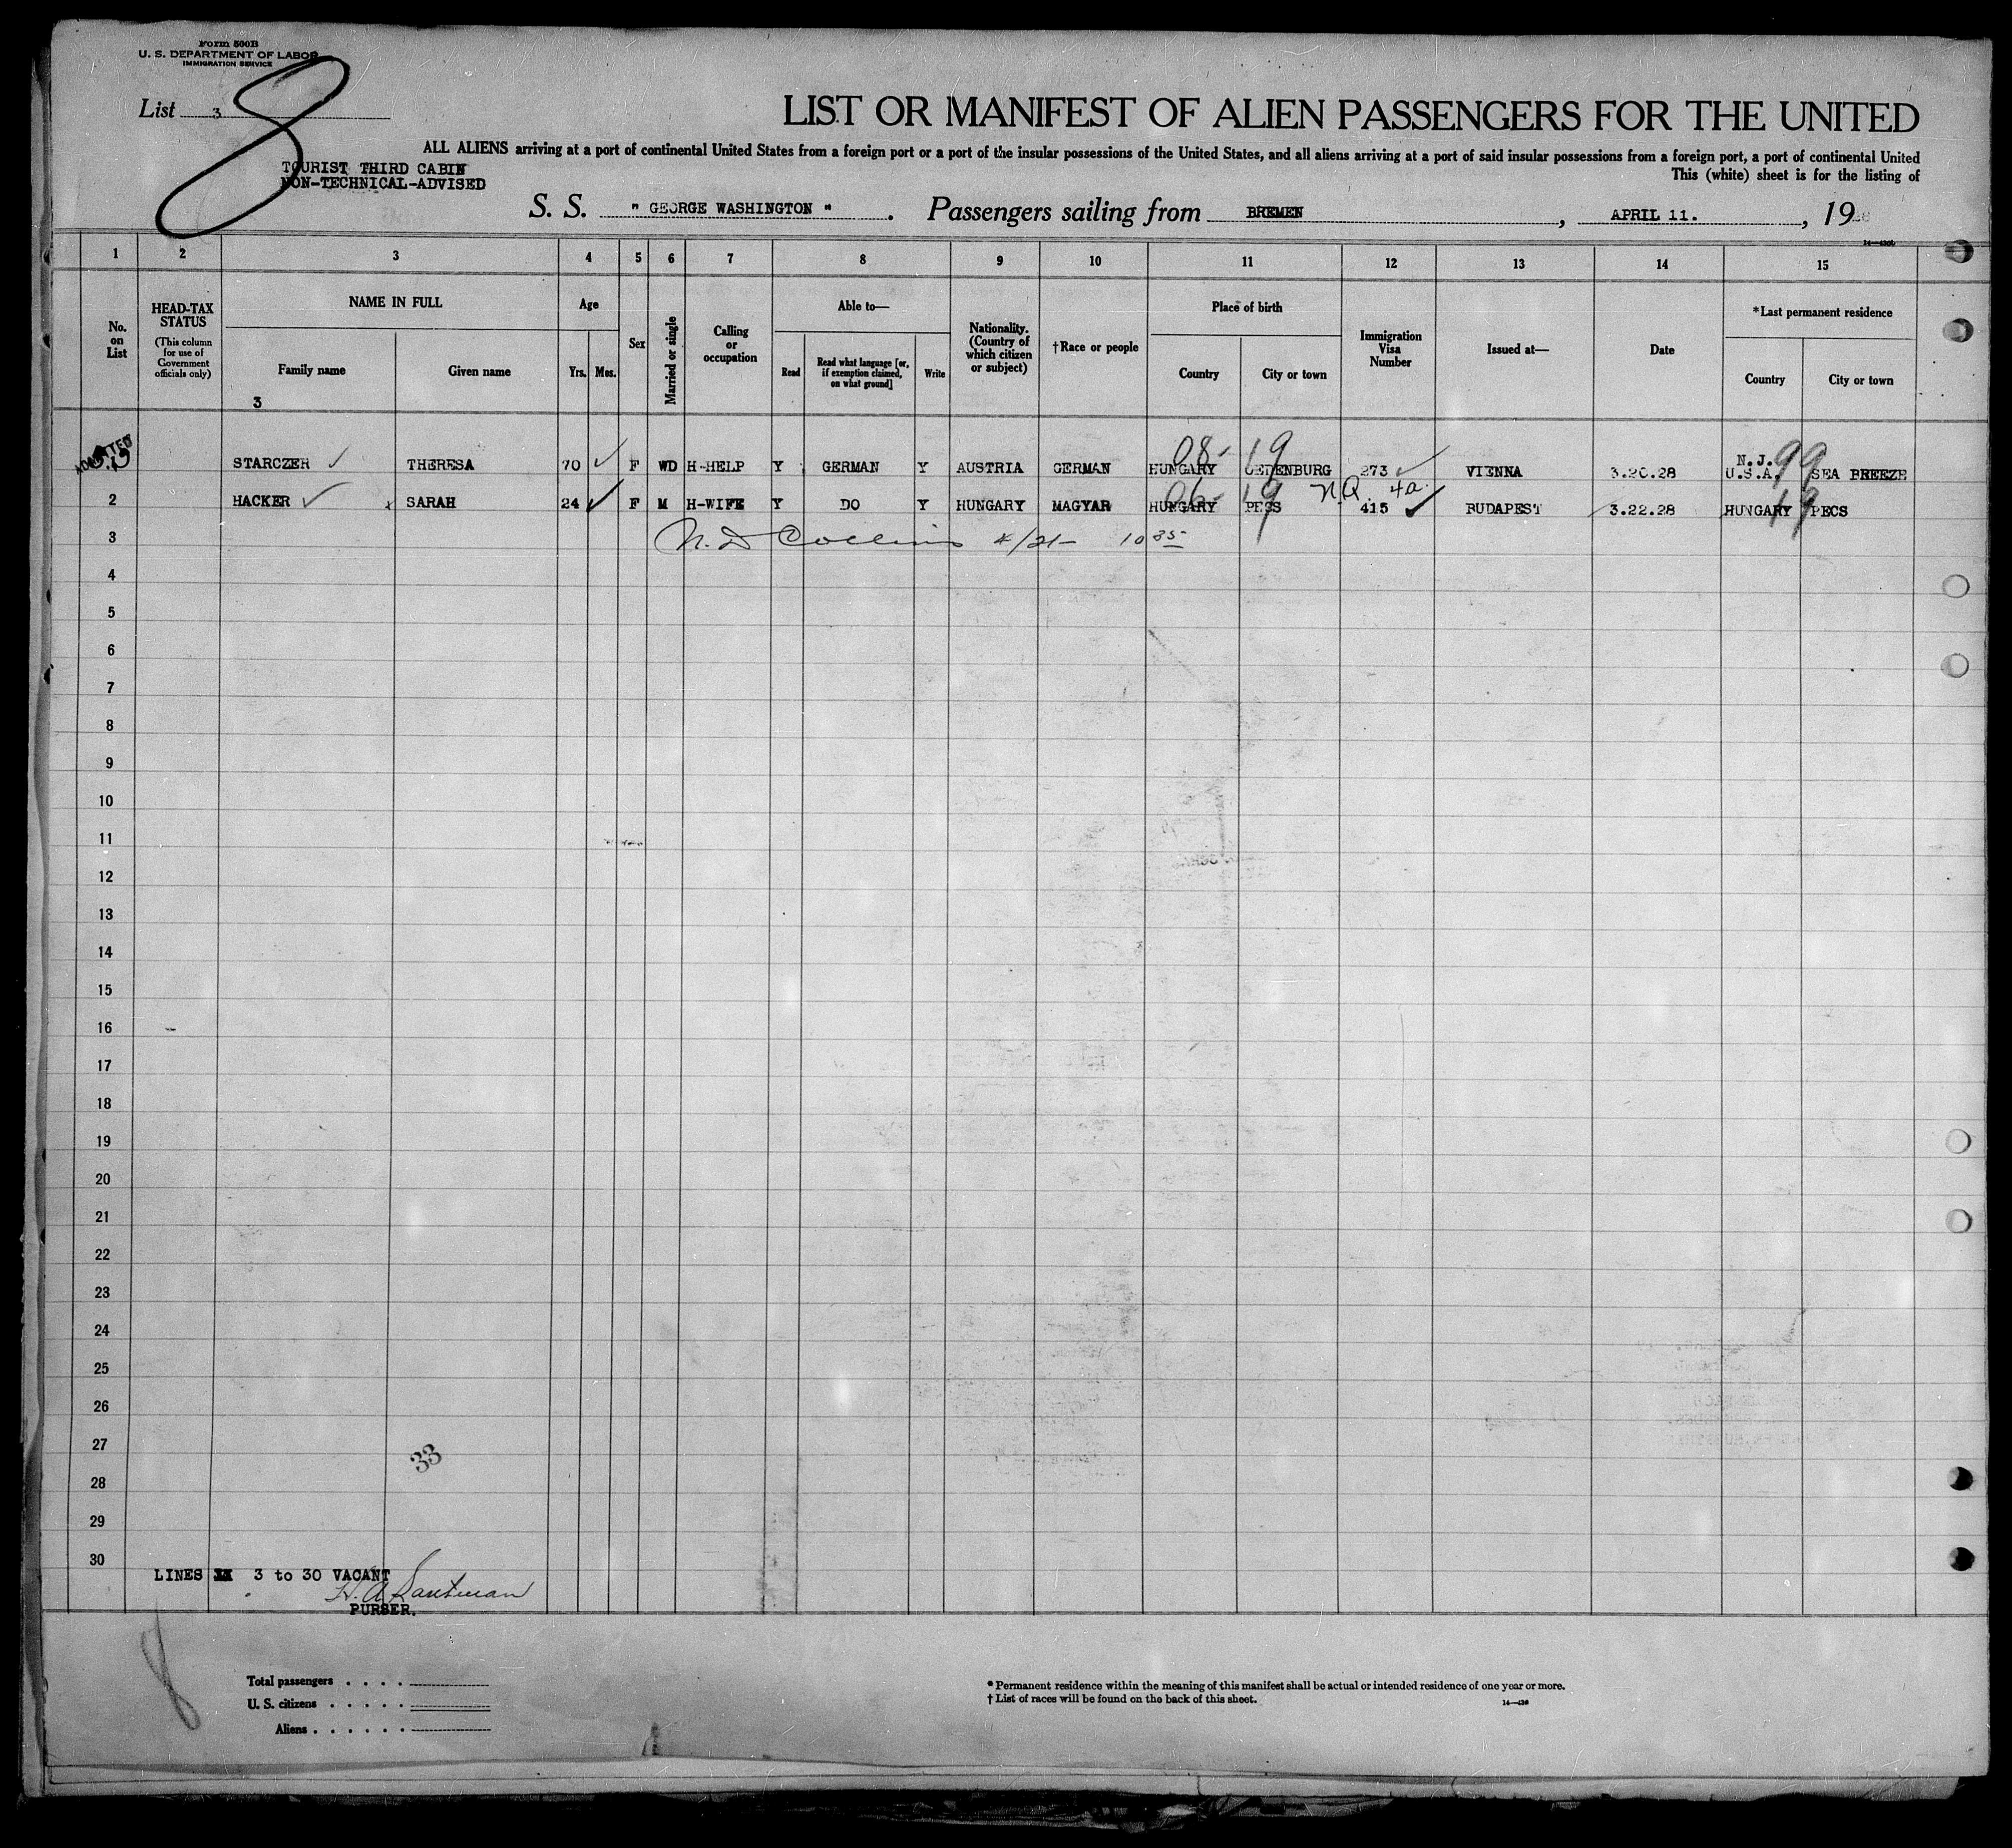 Form 500B
U. S. DEPARTMENT OF LABOR
IMMIGRATION SERVICE
List 3
8
LIST OR MANIFEST OF ALIEN PASSENGERS FOR THE UNITED
ALL ALIENS arriving at a port of continental United States from a foreign port or a port of the insular possessions of the United States, and all aliens arriving at a port of said insular possessions from a foreign port, a port of continental United
This (white) sheet is for the listing of
TOURIST THIRD CABIN
NON-TECHNICAL-ADVISED
S. S. " GEORGE WASHINGTON " . Passengers sailing from BREMEN , APRIL 11. , 1928
1 2 3 4 5 6 7 8 9 10 11 12 13 14 15
No. on List
HEAD-TAX STATUS
(This column for use of Government officials only)
NAME IN FULL
Family name Given name
3
Age
Yrs. Mos.
Sex
Married or single
Calling or occupation
Able to—
Read Read what language [or, if exemption claimed, on what ground] Write
Nationality. (Country of which citizen or subject)
†Race or people
Place of birth
Country City or town
Immigration Visa Number
Issued at—
Date
*Last permanent residence
Country City or town
ADMITTED
08- 19 N.J. 99
STARCZER THERESA 70 F WD H-HELP Y GERMAN Y AUSTRIA GERMAN HUNGARY OEDENBURG 273 VIENNA 3.20.28 U.S.A. SEA BREEZE
06- 19 N.Q. 4a. 19
2 HACKER x SARAH 24 F M H-WIFE Y DO Y HUNGARY MAGYAR HUNGARY PECS 415 BUDAPEST 3.22.28 HUNGARY PECS
3 N. D Collins 4/21- 10 35
4
5
6
7
8
9
10
11
12
13
14
15
16
17
18
19
20
21
22
23
24
25
26
27
33
28
29
30
LINES 3 to 30 VACANT
PURSER.
8
Total passengers . . . .
U. S. citizens . . . . .
Aliens . . . . . .
* Permanent residence within the meaning of this manifest shall be actual or intended residence of one year or more.
† List of races will be found on the back of this sheet.